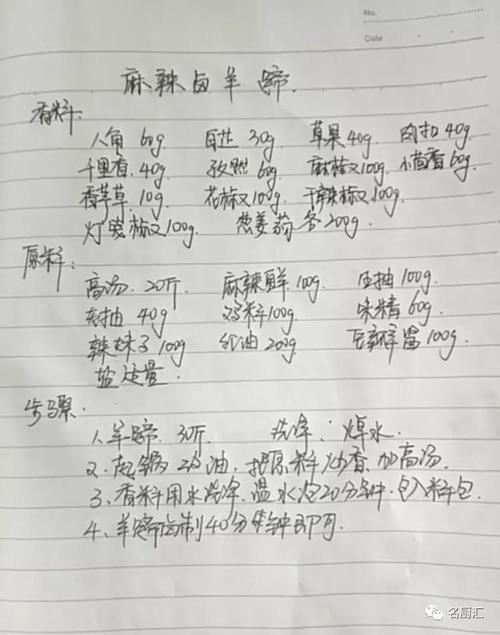 No.
Date
麻辣卤羊蹄.
香料:
八角 60g 白芷 30g 草果 40g 肉扣 40g
千里香. 40g 孜然 60g 麻椒 100g. 小茴香 60g
香茅草. 10g 花椒 100g. 干辣椒 100g.
灯笼椒 100g. 葱姜蒜各 200g.
原料:
高汤. 20斤 麻辣鲜 100g. 生抽 100g.
老抽 40g 鸡料 100g. 味精 60g.
辣妹子 100g 红油 200g. 豆瓣酱 100g.
盐适量.
步骤.
1. 羊蹄. 30斤. 洗净. 焯水.
2. 起锅 油. 把原料炒香. 加高汤.
3. 香料用水洗净. 温水泡20分钟. 包入料包.
4. 羊蹄卤制40分钟即可.
名厨汇